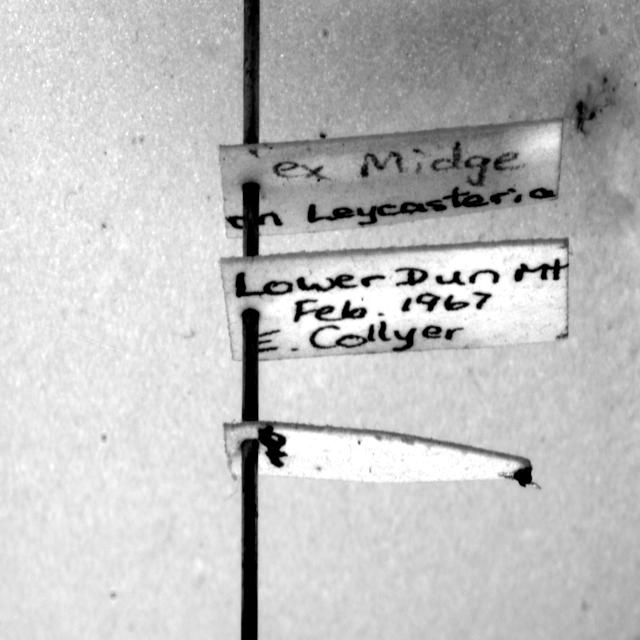 ex Midge
on Leycesteria
Lower Dun Mt
Feb. 1967
E Collyer